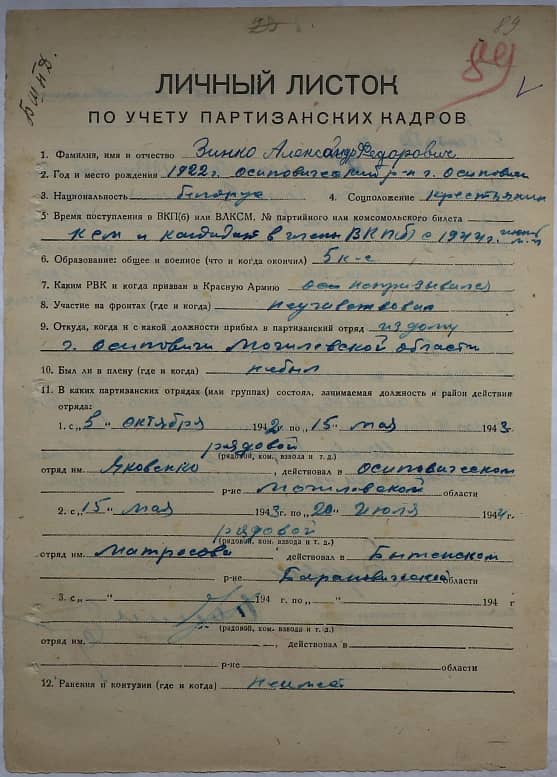 89
89
БШПД.
ЛИЧНЫЙ ЛИСТОК
ПО УЧЕТУ ПАРТИЗАНСКИХ КАДРОВ
1. Фамилия, имя и отчество Зинко Александр Федорович
2. Год и место рождения 1922г. Осиповический р-н г. Осиповичи
3. Национальность белорус 4. Соцположение крестьянин
5 Время поступления в ВКП(б) или ВЛКСМ, № партийного или комсомольского билета
КСМ и кандидат в члены ВКП(б) с 1944г.
6. Образование: общее и военное (что и когда окончил) 5 к-с
7. Каким РВК и когда призван в Красную Армию непризывался
8. Участие на фронтах (где и когда) неучавствовал
9. Откуда, когда и с какой должности прибыл в партизанский отряд из дому
г. Осиповичи Могилевской области
10. Был ли в плену (где и когда) небыл
11. В каких партизанских отрядах (или группах) состоял, занимаемая должность и район действия
отряда:
1. с „5" октября 1942г. по „15" мая 1943г.
рядовой
(рядовой, ком. взвода и т. д.)
отряд им. Яковенко, действовал в Осиповическом
р-не Могилевской области
2. с „15" мая 1943г. по „20" июля 1944г.
рядовой
(рядовой, ком. взвода и т. д.)
отряд им. Матросова действовал в Бытенском
р-не Барановичской области
3. с „ " 194 г. по „ " 194 г
(рядовой, ком. взвода и т. д.)
отряд им. , действовал в
р-не области
12. Ранения и контузии (где и когда) неимел